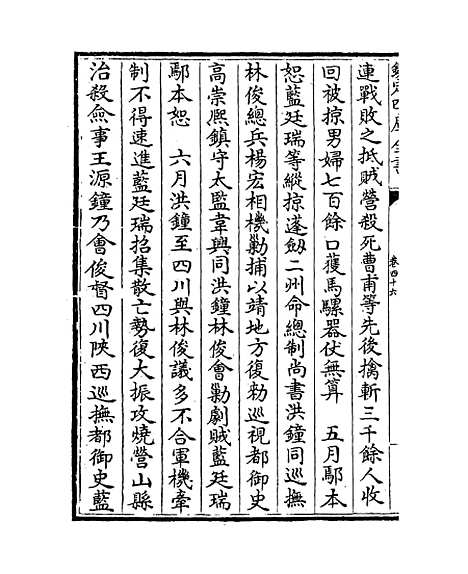 欽定四庫全書
卷四十六
連戰敗之抵賊營殺死曹甫等先後擒斬三千餘人收
回被掠男婦七百餘口獲馬騾器仗無算　五月鄢本
恕藍廷瑞等縱掠蓬劔二州命總制尚書洪鐘同巡撫
林俊總兵楊宏相機勦捕以靖地方復勅巡視都御史
高崇熈鎮守太監韋興同洪鐘林俊會勦劇賊藍廷瑞
鄢本恕　六月洪鐘至四川與林俊議多不合軍機牽
制不得速進藍廷瑞招集散亡勢復大振攻燒營山縣
治殺僉事王源鐘乃會俊督四川陝西巡撫都御史藍